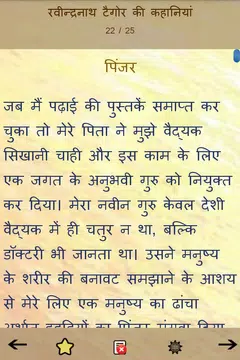 रवीन्द्रनाथ टैगोर की कहानियां
22 / 25
पिंजर
जब मैं पढ़ाई की पुस्तकें समाप्त कर
चुका तो मेरे पिता ने मुझे वैद्यक
सिखानी चाही और इस काम के लिए
एक जगत के अनुभवी गुरु को नियुक्त
कर दिया। मेरा नवीन गुरु केवल देशी
वैद्यक में ही चतुर न था, बल्कि
डॉक्टरी भी जानता था। उसने मनुष्य
के शरीर की बनावट समझाने के आशय
से मेरे लिए एक मनुष्य का ढांचा
अर्थात् हड्डियों का पिंजर मंगवा दिया